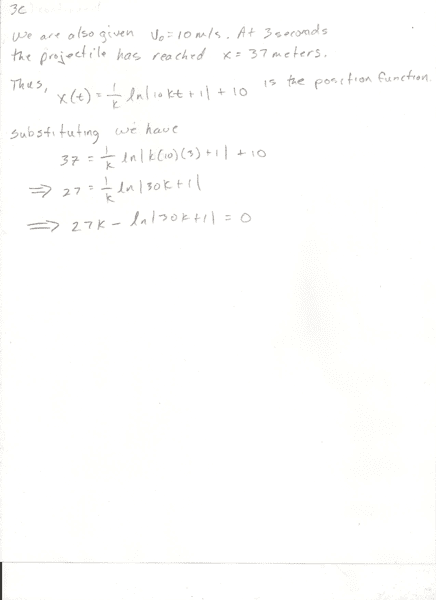 3C
We are also given V₀ = 10 m/s. At 3 seconds
the projectile has reached x = 37 meters.
Thus, x(t) = 1/k ln|10kt + 1| + 10 is the position function.
Substituting we have
37 = 1/k ln|k(10)(3) + 1| + 10
⟹ 27 = 1/k ln|30k + 1|
⟹ 27k - ln|30k + 1| = 0